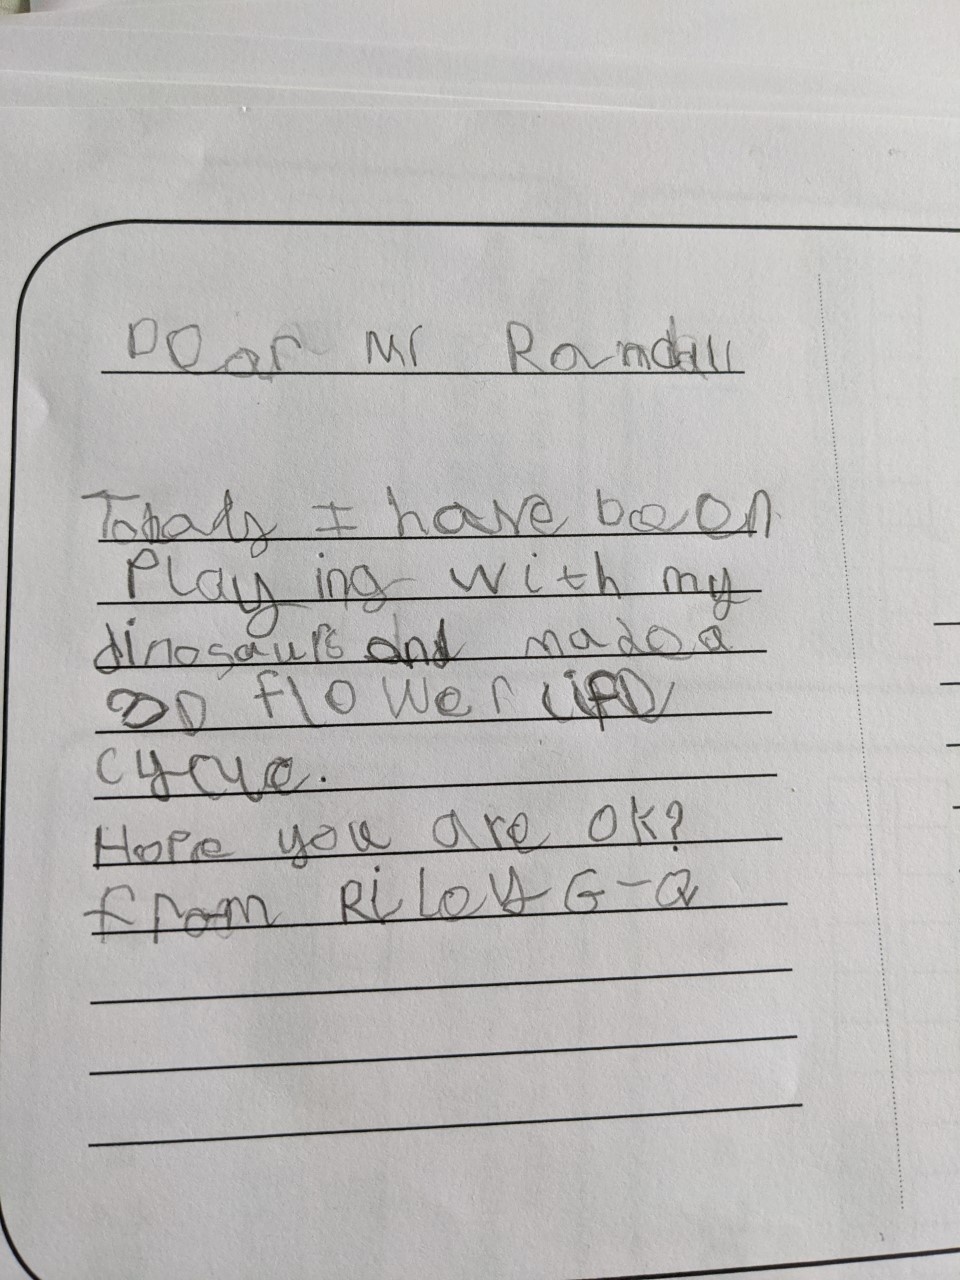 Dear Mr Randall
Today I have been
Playing with my
dinosaurs and made a
3D flower life
cycle.
Hope you are ok?
from Riley G-Q